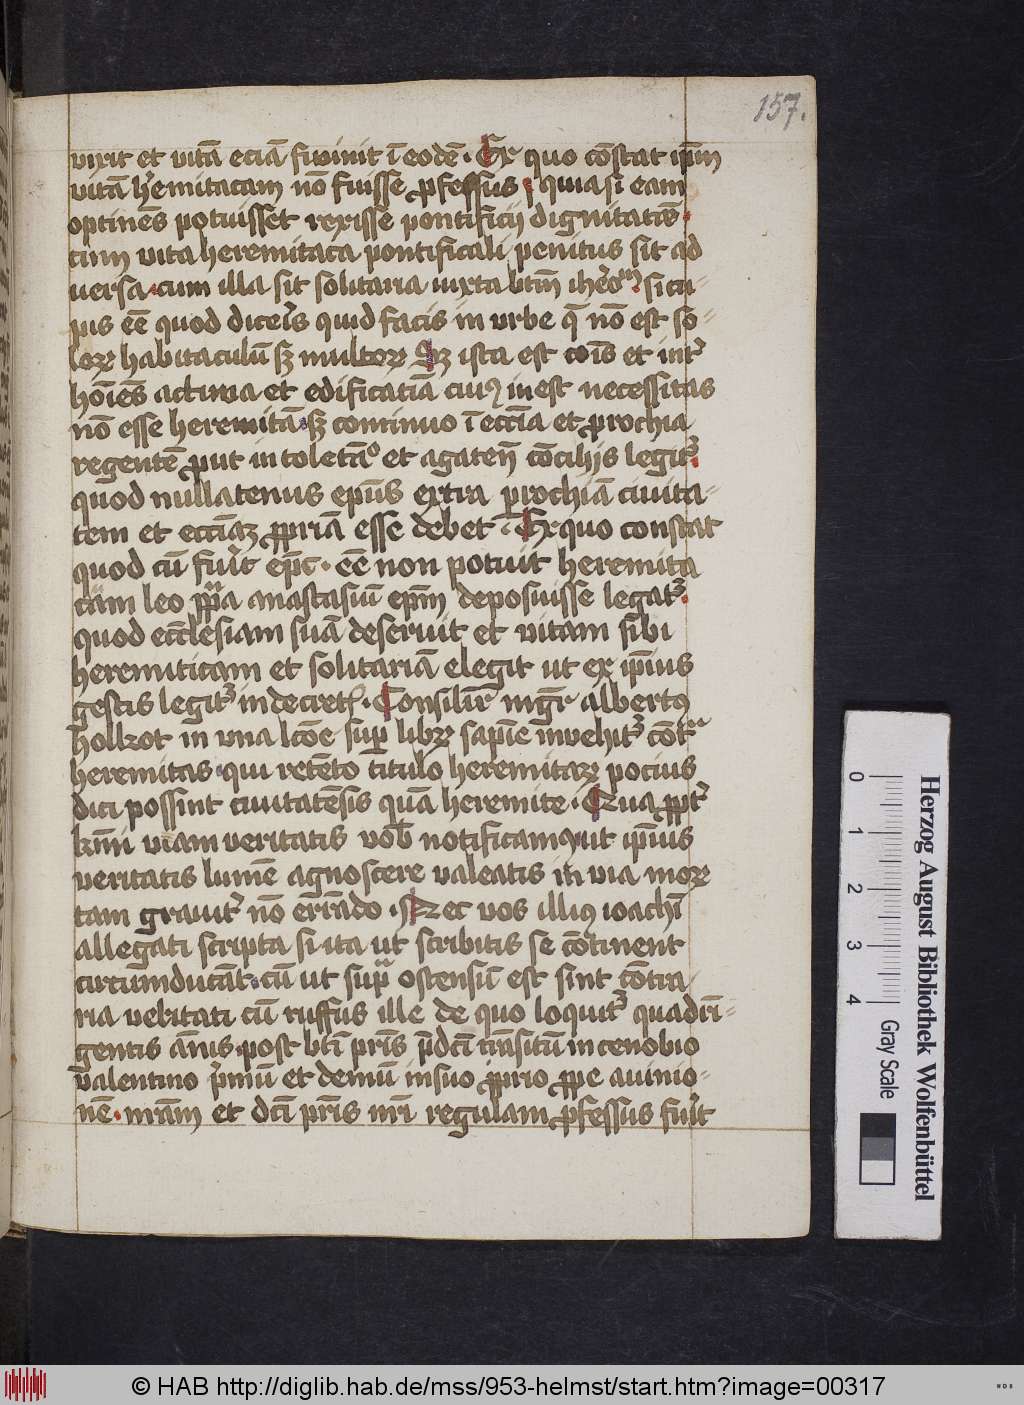 157.
vixit et vitā eciā finiuit ī eodē. Ex quo cōstat ip̄m
vitā h'emitacam nō fuisse ꝓfessus quia si eam
optinēs potuisset rexisse pontificij dignitatē
cum vita heremitaca pontificali penitus sit ad
uersa cum illa sit solitaria iuxta btm̄ si cu-
pis eē quod diceris quid facis in vrbe q̄ nō est so-
loꝝ habitaculū sꝫ multoꝝ Sꝫ ista est et int'
hoīes actiua et cuiꝰ inest necessitas
nō esse heremitā sꝫ continuo ī ecc̄ia et ꝑrochia
regentē ꝓut in et agateñ cōcilijs legit'
quod nullatenus ep̄us extra ꝑrochiā ciuita-
tem et ecc̄iaꝫ ꝓpriā esse debet Ex quo constat
quod cū fu'it ep̄c. eē non potuit heremita
cām leo pp̄a anastasiū ep̄m deposuisse legat'
quod ecclesiam suā deseruit et vitam sibi
heremiticam et solitariā elegit ut ex ip̄ius
gestis legit' in decret. Consilir mgr̄ albertꝰ
holkot in vna lc̄oe sup libꝝ sapie inuehit' cōt
heremitas qui retēto titulo heremitaꝝ pocius
dici possint ciuitatēsis quā heremite. Qua ꝓpt'
km̄i viam veritatis vob notificamꝰ ut ip̄ius
veritatis lumē agnoscere valeatis in via moꝝ
tam grauit' nō errādo. Nec vos illiꝰ ioachī
allegati scripta si ita ut scribitis se cōtinent
circumducāt cū ut sup ostensū est sint cōtra
ria veritati cū ruffus ille de quo loquit' quadrī-
gentis ānis post bt̄i prīs p̄dc̄i trāsitū in cenobio
valentino p'miū et demū in suo ꝓprio ꝓpe auinio-
nē. et dc̄i prīs nr̄i regulam ꝓfessus fu'it
Herzog August Bibliothek Wolfenbüttel
0 1 2 3 4
Gray Scale
© HAB http://diglib.hab.de/mss/953-helmst/start.htm?image=00317